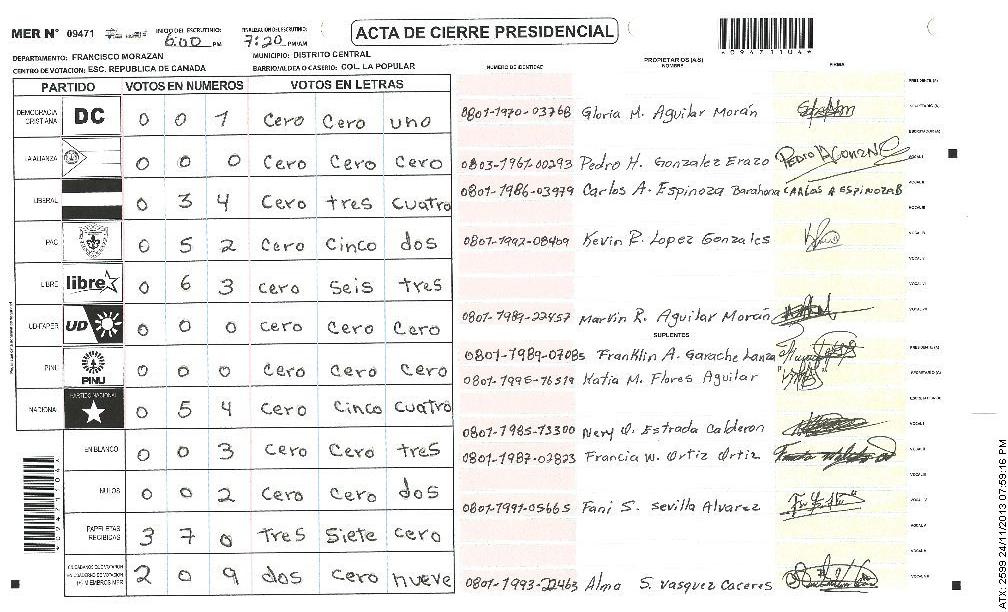 MER N° 09471
INICIO DEL ESCRUTINIO: 6:00 PM
FINALIZACIÓN DEL ESCRUTINIO: 7:20 PM/AM
ACTA DE CIERRE PRESIDENCIAL
DEPARTAMENTO: FRANCISCO MORAZAN
MUNICIPIO: DISTRITO CENTRAL
CENTRO DE VOTACION: ESC. REPUBLICA DE CANADA
BARRIO/ALDEA O CASERIO: COL. LA POPULAR
PARTIDO VOTOS EN NUMEROS VOTOS EN LETRAS
NUMERO DE IDENTIDAD PROPIETARIOS (AS) NOMBRE FIRMA
DEMOCRACIA CRISTIANA DC 0 0 1 Cero Cero uno
LA ALIANZA 0 0 0 Cero Cero Cero
LIBERAL 0 3 4 Cero tres cuatro
PAC 0 5 2 Cero Cinco dos
LIBRE libre 0 6 3 Cero Seis tres
UD-FAPER UD 0 0 0 Cero Cero Cero
PINU PINU 0 0 0 Cero Cero Cero
NACIONAL PARTIDO NACIONAL 0 5 4 Cero Cinco cuatro
EN BLANCO 0 0 3 Cero Cero tres
NULOS 0 0 2 Cero Cero dos
PAPELETAS RECIBIDAS 3 7 0 Tres Siete Cero
2 0 9 dos cero nueve
0801-1970-03768 Gloria M. Aguilar Morán
0803-1961-00293 Pedro H. Gonzalez Erazo
0801-1986-03979 Carlos A. Espinoza Barahona CARLOS A ESPINOZA B
0801-1992-08409 Kevin R. Lopez Gonzales
0801-1989-22457 Marvin R. Aguilar Morán
SUPLENTES
0801-1989-07085 Franklin A. Garache Lanza
0801-1995-16519 Katia M. Flores Aguilar
0801-1985-13300 Nery O. Estrada Calderon
0801-1987-02823 Francia W. Ortiz Ortiz
0801-1991-05665 Fani S. Sevilla Alvarez
0801-1993-22463 Alma S. Vasquez Caceres
ATX: 2599 24/11/2013 07:59:16 PM